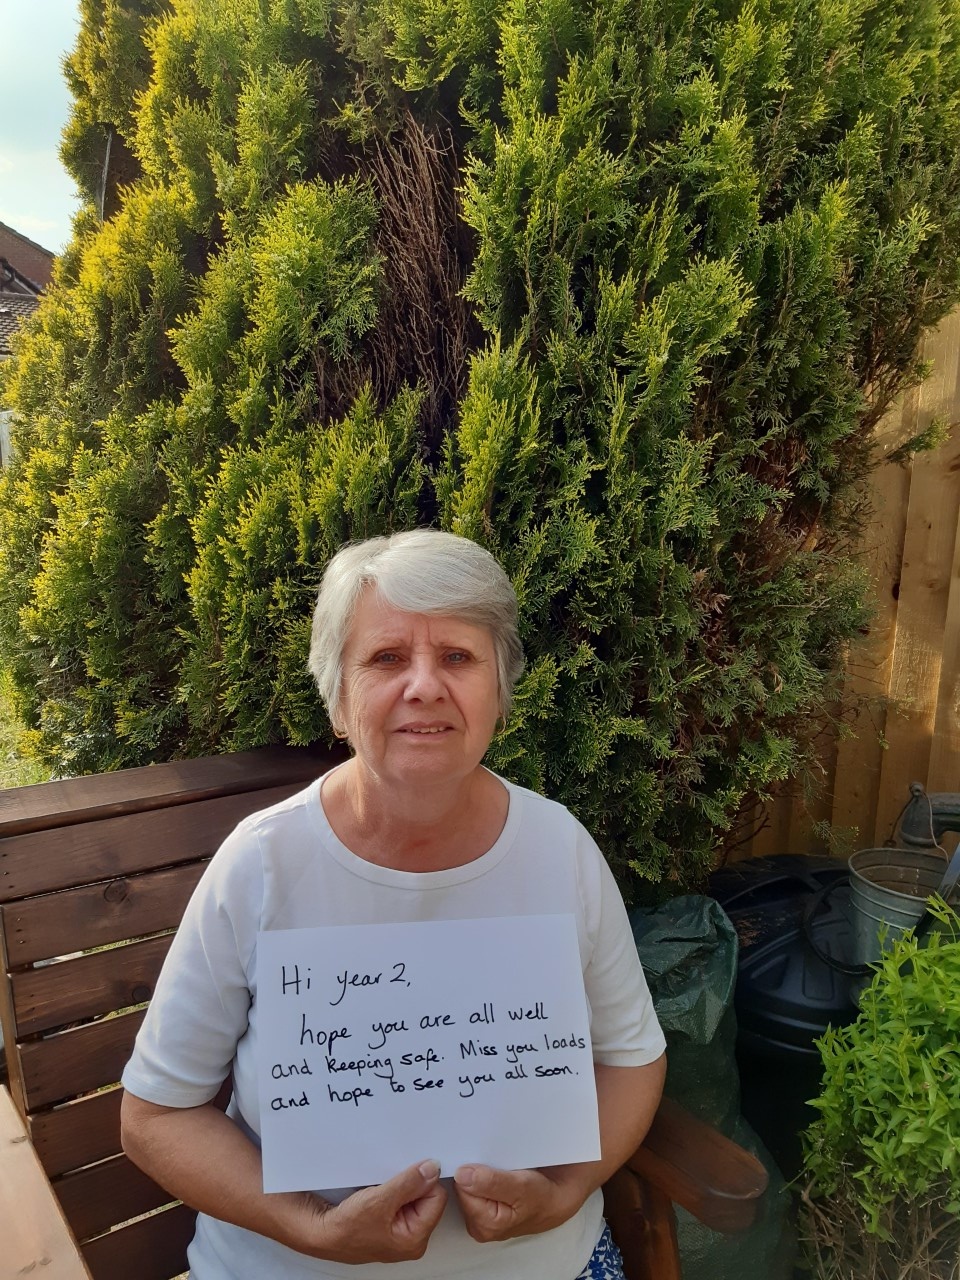 Hi year 2,
hope you are all well
and keeping safe. Miss you loads
and hope to see you all soon.